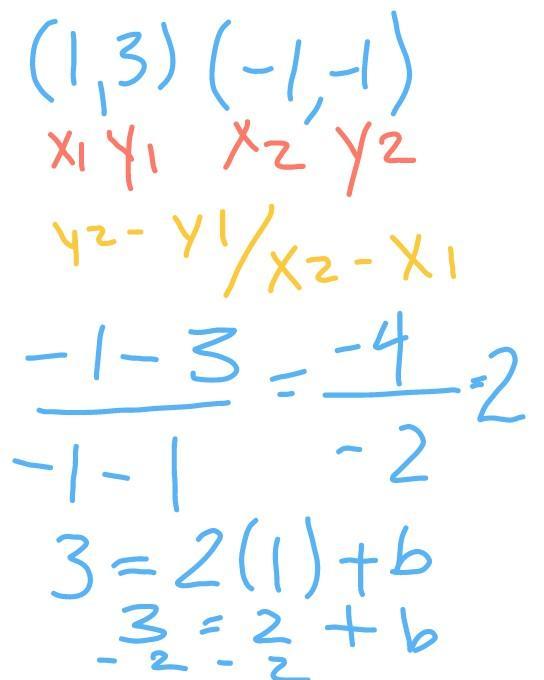 (1,3) (-1,-1)
x1 y1 x2 y2
y2 - y1/x2 - x1
-1-3/-1-1 = -4/-2 = 2
3 = 2(1) + b
3 = 2 + b
-2 -2